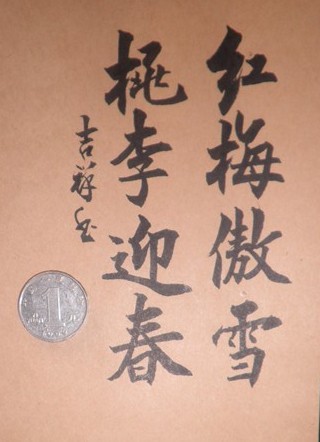 红梅傲雪
桃李迎春
吉祥玉
1